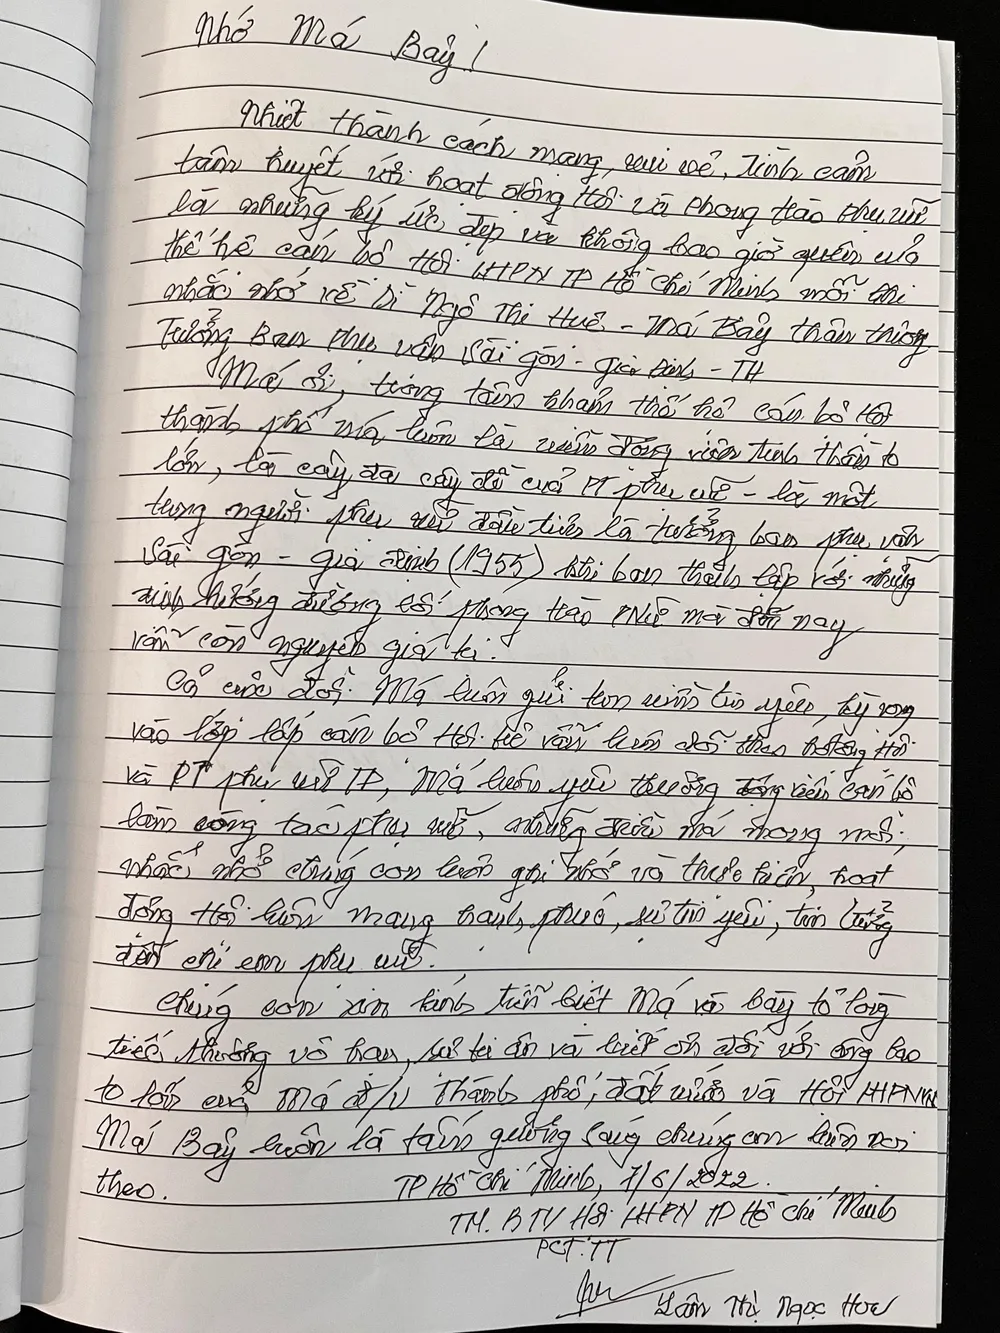 Nhớ Má Bảy!
Nhiệt thành cách mạng, vui vẻ, tình cảm
tâm huyết với hoạt động Hội và phong trào phụ nữ
là những ký ức đẹp và không bao giờ quên của
thế hệ cán bộ Hội LHPN TP Hồ Chí Minh mỗi khi
nhắc nhớ về Dì Ngô Thị Huệ - Má Bảy thân thương
Trưởng Ban Phụ vận Sài gòn - Gia Định - TH
Má ơi, trong tâm khảm thế hệ cán bộ Hội
thành phố má luôn là nguồn động viên tinh thần to
lớn, là cây đa cây đề của PT phụ nữ - là một
trong người phụ nữ đầu tiên là trưởng ban phụ vận
Sài gòn - gia định (1955) khi ban thành lập với những
định hướng đường lối phong trào PNữ mà đến nay
vẫn còn nguyên giá trị.
Cả cuộc đời Má luôn gửi trọn niềm tin yêu, kỳ vọng
vào lớp lớp cán bộ Hội kế vẫn luôn dõi theo hoạt động Hội
và PT phụ nữ TP, Má luôn yêu thương động viên cán bộ
làm công tác phụ nữ, những điều má mong mỏi,
nhắc nhở chúng con luôn ghi nhớ và thực hiện, hoạt
động Hội luôn mang hạnh phúc, sự tin yêu, tin tưởng
đến chị em phụ nữ.
Chúng con xin kính tiễn biệt Má và bày tỏ lòng
tiếc thương vô hạn, sự tri ân và biết ơn đối với công lao
to lớn của Má đ/v Thành phố, đất nước và Hội LHPNVN
Má Bảy luôn là tấm gương sáng chúng con luôn noi
theo. TP Hồ Chí Minh, 7/6/2022.
TM. BTV Hội LHPN TP Hồ Chí Minh
PCT.TT
Lâm Thị Ngọc Hoa